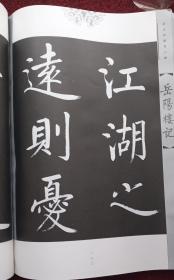 江湖之
遠則憂
【岳陽樓記】